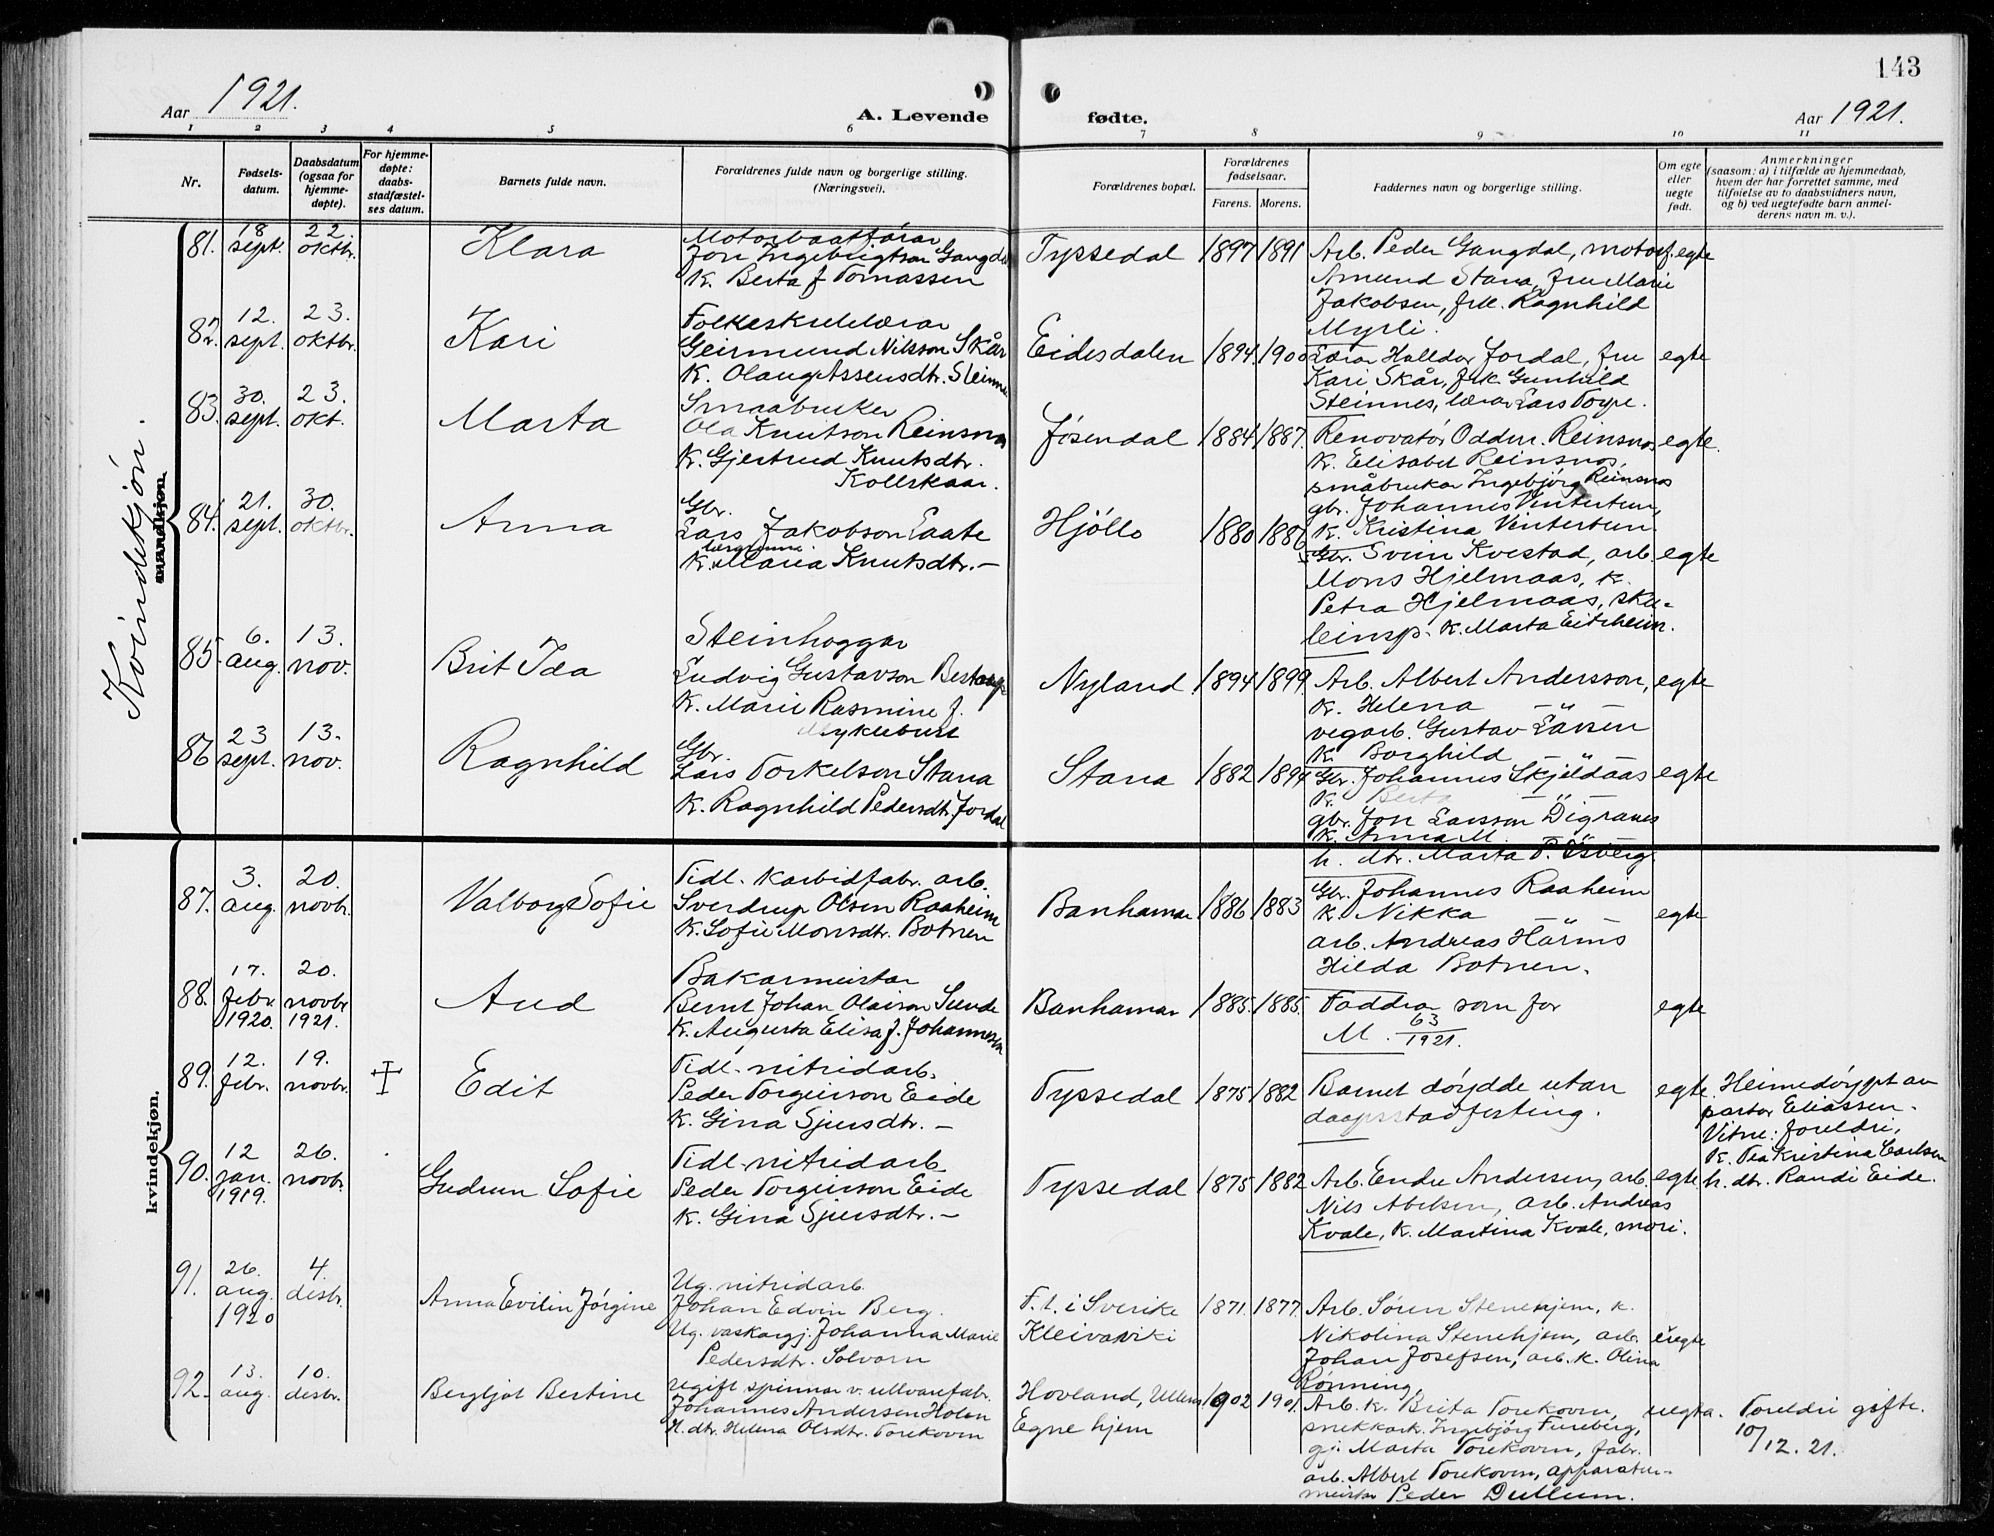 143
Aar 1921.
A. Levende fødte.
Aar 1921.
1 2 3 4 5 6 7 8 9 10 11
Nr.
Fødsels-
datum.
Daabsdatum
(ogsaa for
hjemme-
døpte).
For hjemme-
døpte:
daabs-
stadfæstel-
ses datum.
Barnets fulde navn.
Forældrenes fulde navn og borgerlige stilling.
(Næringsvei).
Forældrenes bopæl.
Forældrenes
fødselsaar.
Farens. Morens.
Faddernes navn og borgerlige stilling.
Om egte
eller
uegte
født.
Anmerkninger
(saasom: a) i tilfælde av hjemmedaab,
hvem der har forrettet samme, med
tilføielse av to daabsvidners navn,
og b) ved uegtefødte barn anmel-
derens navn m. v.).
Kvindekjøn.
mandkjøn.
81. 18 sept. 22. oktbr. Klara
Motorbaatførar
Jon Ingebrigtson Gangdal
K. Berta f. Tomassen
Tyssedal 1897 1891
Arb. Peder Gangdal, motorf. egte
Amund Stana, fru Marie
Jakobsen, frk. Ragnhild
Myrli.
82. 12. sept. 23. oktbr. Kari
Folkeskulelærar
Geirmund Nilsson Skår
K. Olaug Assensdtr. Steinnes
Eidesdalen 1894. 1900
Lærar Halldor Jordal, fru egte
Kari Skår, frk. Gunhild
Steinnes, lærar Lars
83. 30. sept. 23. okt. Marta
Smaabruker
Ola Knutson Reinsnos
K. Gjertrud Knutsdtr.
Kollskaar.
Jøsendal 1884 1887.
Renovatør Oddm. Reinsnos egte.
K. Elisabet Reinsnos,
småbrukar Ingebjørg Reinsnos
gbr. Johannes Vintertun,
K. Kristina Vintertun
84. 21. sept. 30. oktbr. Anna
Gbr.
Lars Jakobson Laate
K. Maria Knutsdtr. —
Hjøllo 1880 1886
Gbr. Svein Kvestad, arb. egte
Mons Hjelmaas, K.
Petra Hjelmaas, sku-
leinsp. K. Marta Eitrheim.
85. 6. aug. 13. nov. Brit Ida
Steinhoggar
Ludvig Gustavson
K. Marie Rasmine f.
Myklebust
Nyland. 1894 1899.
Arb. Albert Andersson, egte
K. Helena — —
vegarb. Gustav
K. Borghild — —
86 23 sept. 13. nov. Ragnhild
Gbr.
Lars Torkelson Stana
K. Ragnhild Pedersdtr. Jordal
Stana 1882 1894
Gbr. Johannes Skjeldaas egte
K. Berta — —
gbr. Jon Larsson Digranes
K. Anna M. — —
h. dtr. Marta P.
kvindekjøn.
87. 3. aug. 20. novbr. Valborg Sofie
Tidl. Karbidfabr. arb.
Sverdrup Olsen Raaheim
K. Sofie Monsdtr. Botnen
Banhamar 1886. 1883
Gbr. Johannes Raaheim
K. Nikka — — egte
arb. Andreas
Hilda Botnen.
88. 17. febr. 1920. 20. novbr 1921. Aud
Bakarmeistar
Bernt Johan Olaison Sunde
K. Augusta Elisa f. Johannesen
Banhamar 1885. 1885.
Faddrar som for egte
M. 63/1921.
89. 12. febr. 19. novbr. Edit
Tidl. nitridarb.
Peder Torgeirson Eide
K. Gina Sjursdtr. —
Tyssedal 1875 1882
Barnet døydde utan egte.
daapsstadfesting.
Heimedøypt av
pastor Eliassen.
Vitne: foreldri,
K. Tea Kristina Carlsen
h. dtr. Randi Eide.
90. 12 jan. 1919. 26. novbr. Gudrun Sofie
Tidl. nitridarb.
Peder Torgeirson Eide
K. Gina Sjursdtr. —
Tyssedal 1875 1882
Arb. Endre Andersen, arb. egte.
Nils Abelsen, arb. Andreas
Kvale, K. Martina Kvale, mori.
91. 26. aug. 1920 4. desbr. Anna Evilin Jørgine
Ug. nitridarb.
Johan Edvin Berg.
Ug. vaskargj. Johanna Marie
Pedersdtr. Solvorn
F. t. i Sverike
Kleivaviki
1871. 1877.
Arb. Søren Stenehjem, K.
Nikolina Stenehjem, arb. uegte
Johan Josefsen, arb. K. Olina
Rønning.
92. 13. aug. 10. desbr. Bergljot Bertine
Ugift spinnar v. ullvarefabr.
Johannes Andersen Holen
H. dtr. Helena Olsdtr. Torekoven
Hovland, Ullensv.
Egne hjem
1902 1901.
Arb. K. Brita Torekoven, uegta.
snekkark. Ingebjørg Fureberg,
gj. Marta Torekoven, fabr.
arb. Albert Torekoven, apparatur-
meister Peder Dullum.
Foreldri gifte.
10/12. 21.